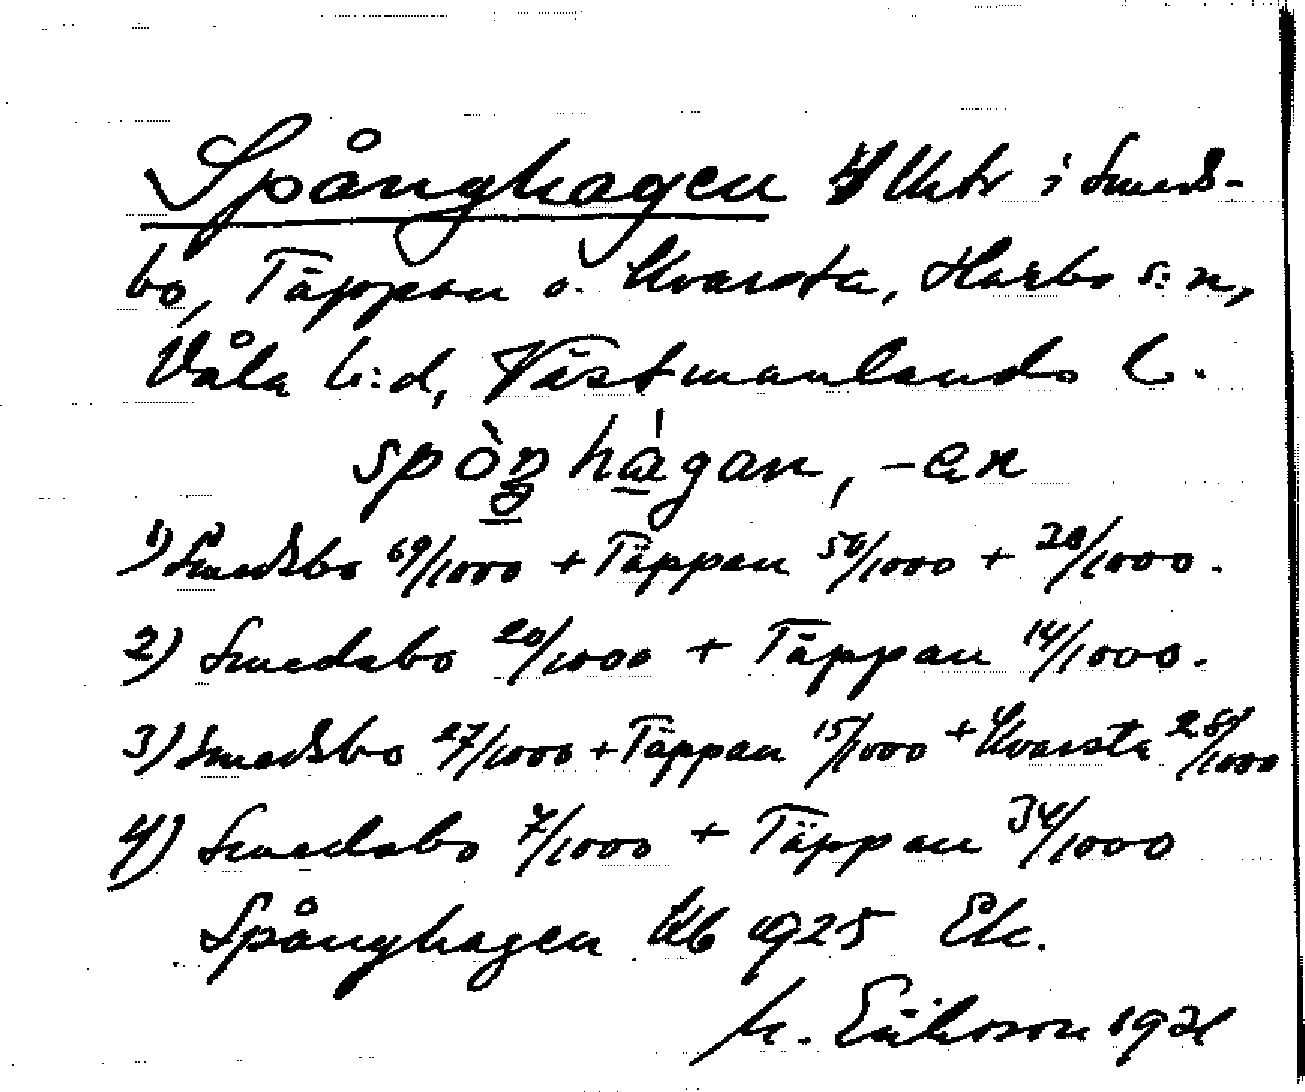 Spånghagen 4 lhtr i Smeds-
bo, Täppan o. Kvarsta, Harbo s:n,
Våla h:d, Västmanlands l.
spòŋhágan, -en
1) Smedsbo 69/1000 + Täppan 56/1000 + 20/1000.
2) Smedsbo 20/1000 + Täppan 14/1000.
3) Smedsbo 27/1000 + Täppan 15/1000 + Kvarsta 28/1000
4) Smedsbo 7/1000 + Täppan 34/1000
Spånghagen Kb 1925 Ek.
M. Eriksson 1931